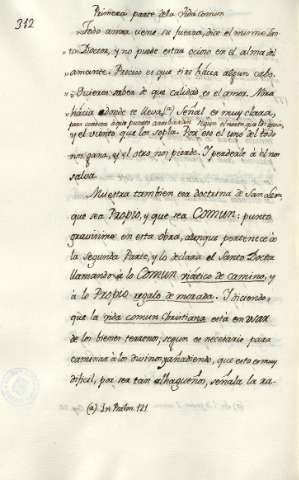 312
Primera parte de la Vida comun
Todo amor tiene su fuerza, dice el mismo San-
to Doctor, y no puede estar ocioso en el alma del
amante. Preciso es que tire hácia algun cabo.
Quieres saber de que calidad es el amor. Mira
hácia adonde te lleva (a) Señal es muy clara,
y el viento que los sopla. Por eso el uno del todo
nos gana, y el otro nos pierde.
salva.
Muestra tambien esa doctrina de San
que sea Propio, y que sea Comun: punto
gravisimo en esta obra, aunque pertenece à
la Segunda Parte, y lo declara el Santo Doctor
llamando à lo Comun viatico de camino, y
à lo Propio regalo de morada. Y diciendo,
que la vida comun Christiana está en usar
de los bienes terrenos, segun es necesario para
caminar à los divinos; y añadiendo, que esto es muy
dificil, por ser tan alhagueños, señala la ra-
(a) In Psalm. 121.